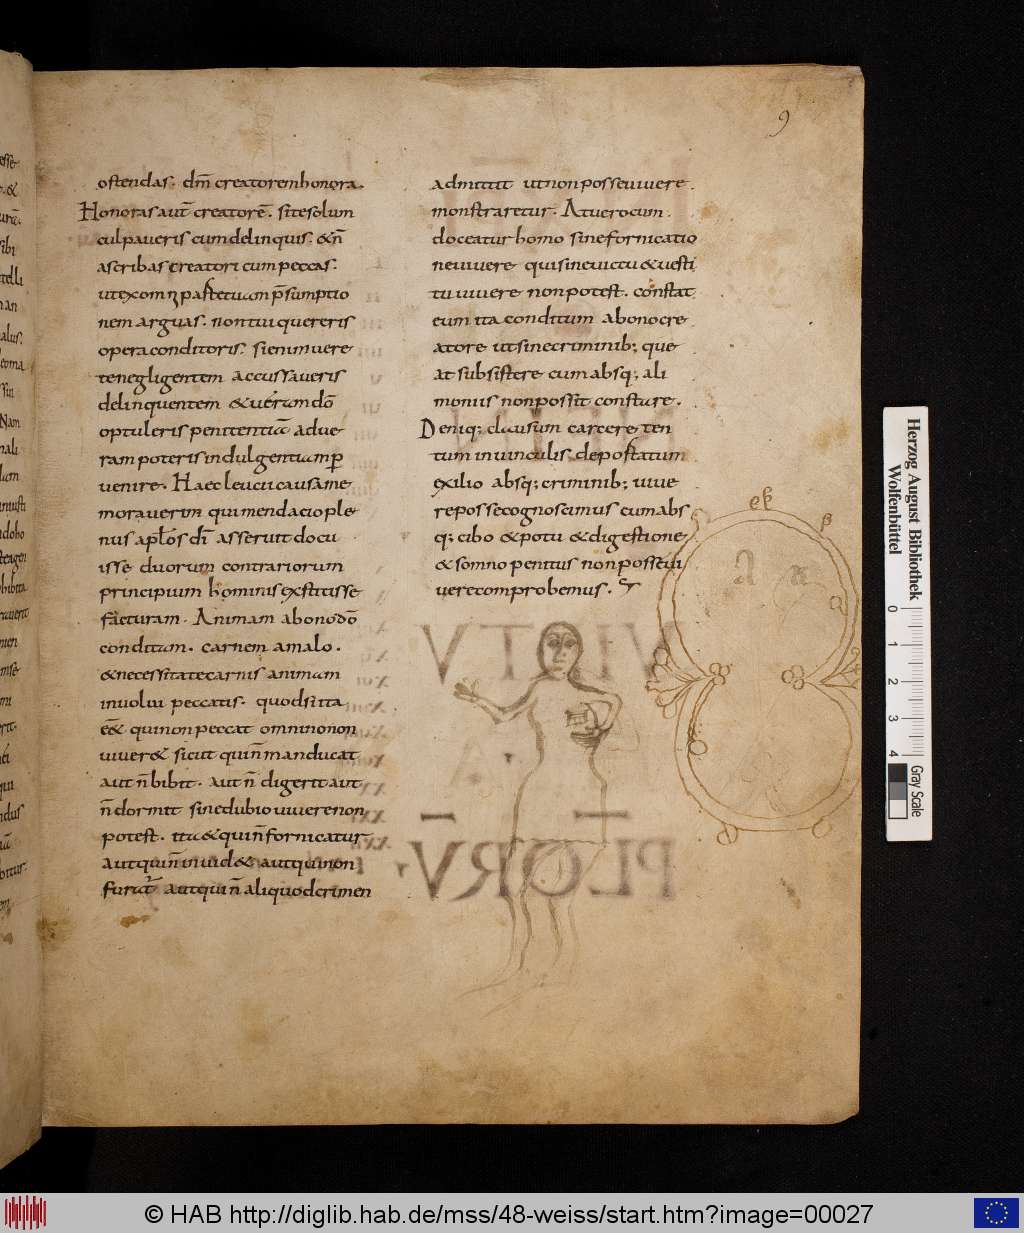 9
ostendas. dm̄ creatorem honora.
Honoras aut̄ creatorē. si te solum
culpaveris cum delinquis. & n̄
ascribas creatori cum peccas.
nem arguas. non tui quereris
opera conditoris. Si enim vere
te negligentem accussaveris
delinquentem & verum dō
optuleris penitentiā adve
ram poteris indulgentiam ꝑ
venire. Haec leucii causa me
moraverim qui mendacio ple
nus apl̄os dī asseruit docu
isse duorum contrariorum
principium hominis exstitisse
facturam. Animam a bono dō
conditam. carnem a malo.
& necessitate carnis animam
involvi peccatis. quod si ita
ē & qui non peccat omnino non
viver& sicut qui n̄ manducat
aut n̄ bibit. aut n̄ digerit aut
n̄ dormit sine dubio vivere non
potest. ita & qui n̄ fornicatur
aut qui n̄ invid& aut qui non
furat᷑ aut qui n̄ aliquod crimen
admittit ut non posse vivere
monstraretur. At vero cum
doceatur homo sine fornicatio
ne vivere qui sine victu & vesti
tu vivere non potest. constat
eum ita conditum a bono cre
atore ut sine criminib; que
at subsistere cum absq; ali
moniis non possit constare.
Deniq; clausum carcere ten
tum in vinculis. depostatum
exilio absq; criminib; vive
re posse cognoscimus cum abs
q; cibo & potu & digestione
& somno penitus non posse vi
vere comprobemus.
Herzog August Bibliothek
Wolfenbüttel
0 1 2 3 4
Gray Scale
© HAB http://diglib.hab.de/mss/48-weiss/start.htm?image=00027